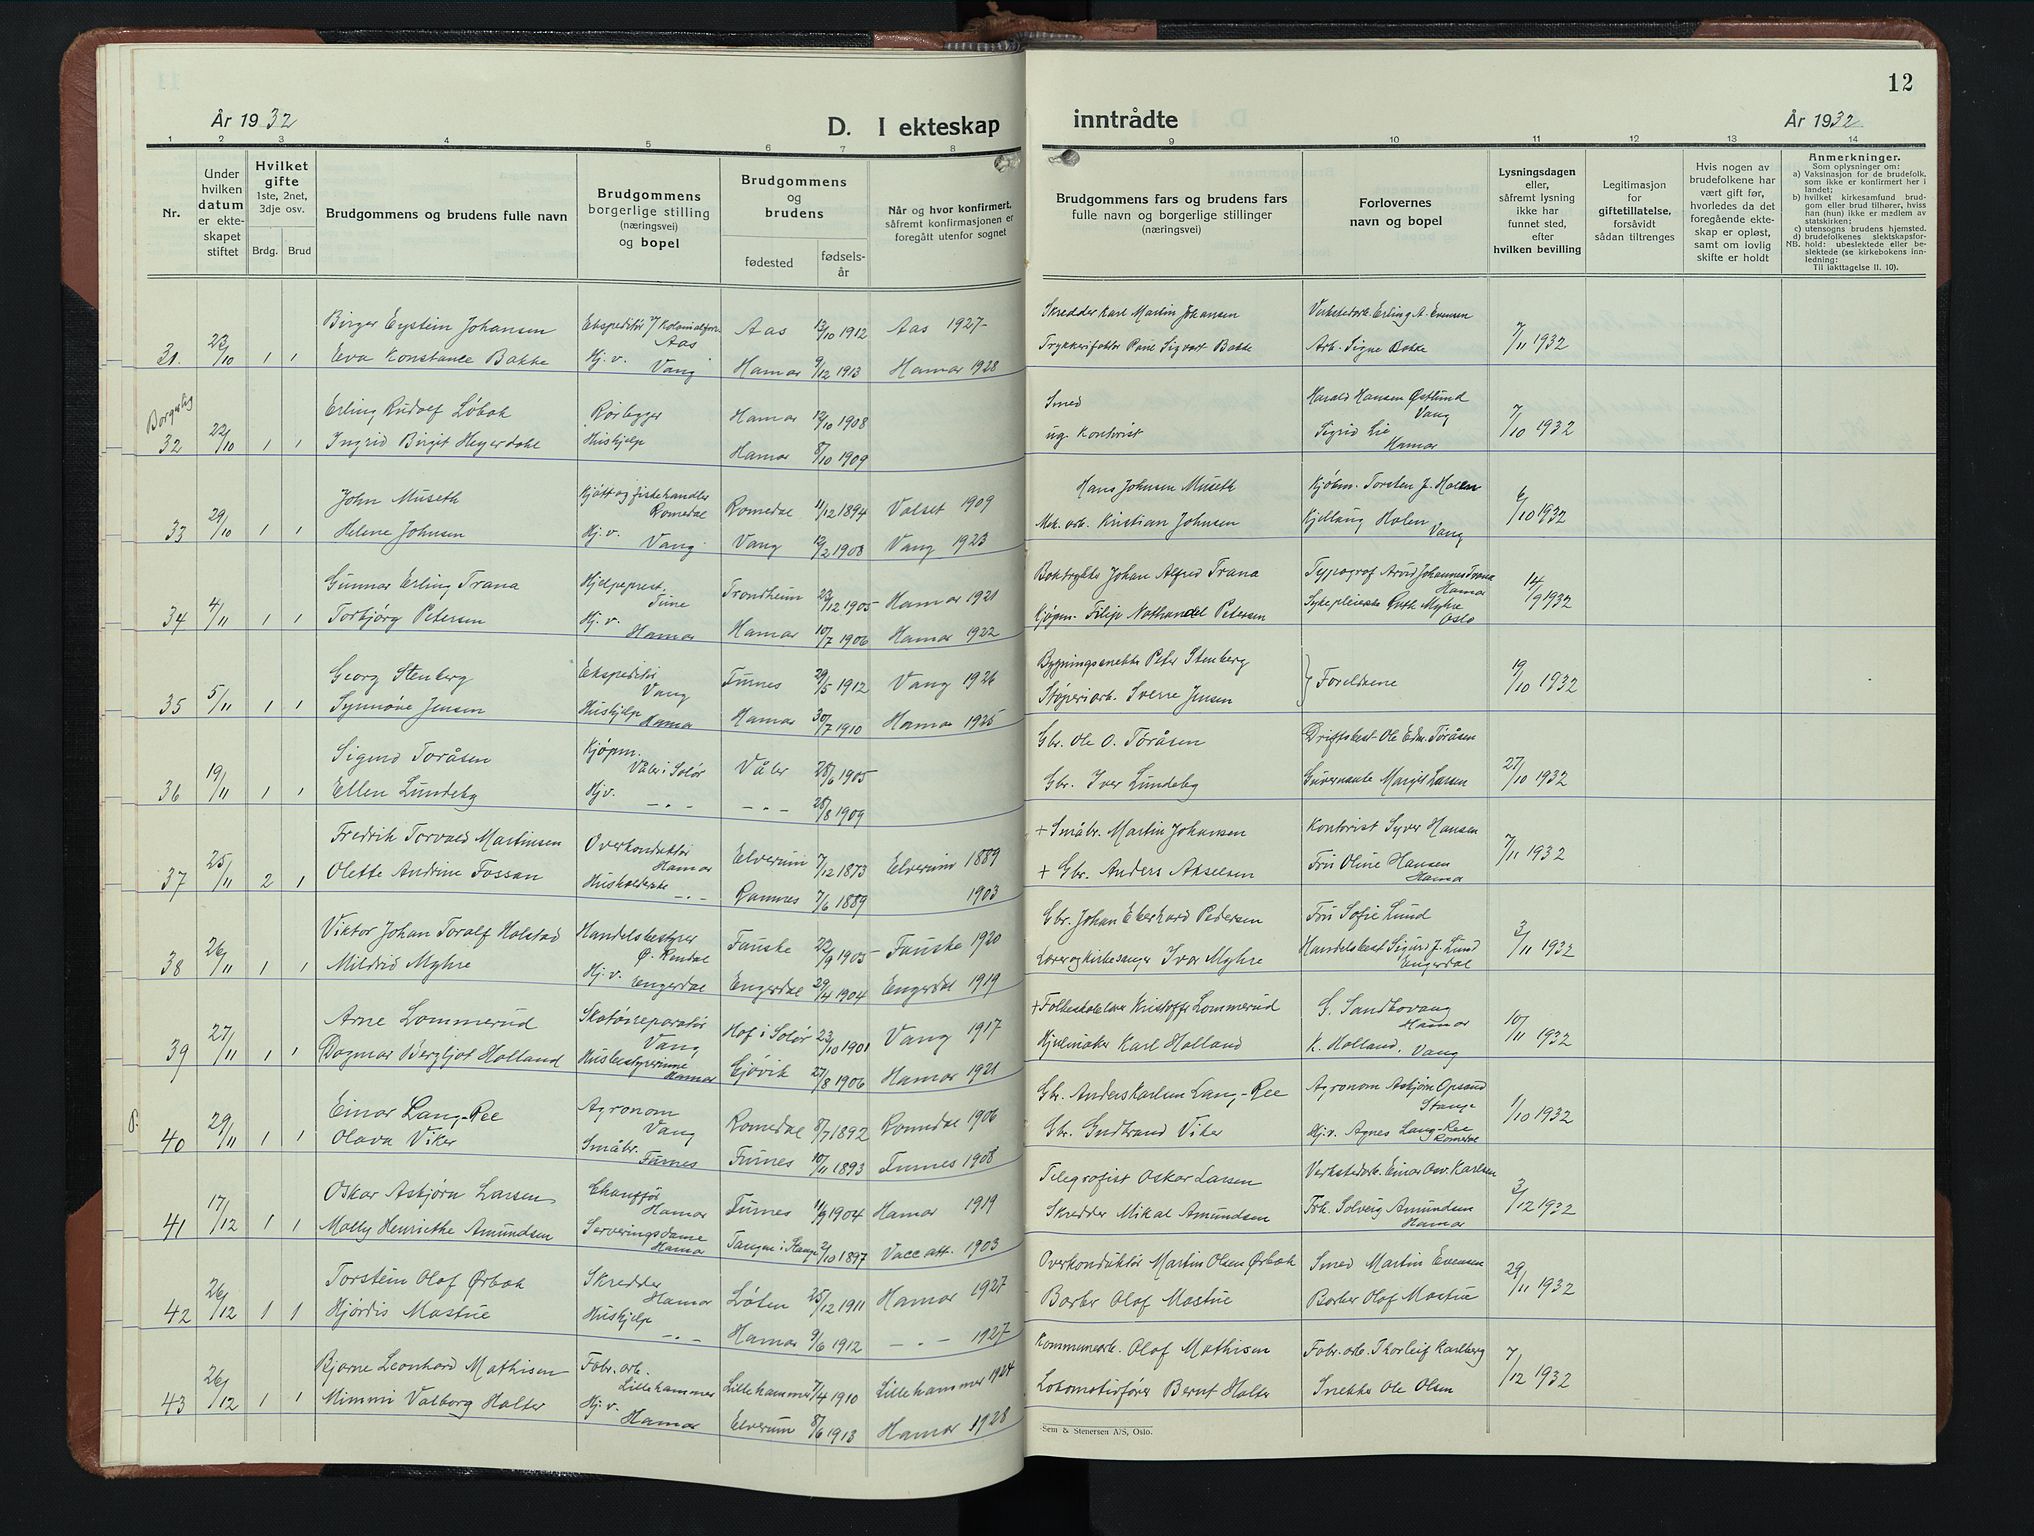 12
År 1932
D. I ekteskap inntrådte
År 1932
1 2 3 4 5 6 7 8 9 10 11 12 13 14
Nr.
Under hvilken datum er ekteskapet stiftet
Hvilket gifte 1ste, 2net, 3dje osv.
Brdg. Brud
Brudgommens og brudens fulle navn
Brudgommens borgerlige stilling (næringsvei) og bopel
Brudgommens og brudens
fødested
fødselsår
Når og hvor konfirmert, såfremt konfirmasjonen er foregått utenfor sognet
Brudgommens fars og brudens fars fulle navn og borgerlige stillinger (næringsvei)
Forlovernes navn og bopel
Lysningsdagen eller, såfremt lysning ikke har funnet sted, efter hvilken bevilling
Legitimasjon for giftetillatelse, forsåvidt sådan tiltrenges
Hvis nogen av brudefolkene har vært gift før, hvorledes da det foregående ekteskap er opløst, samt om lovlig skifte er holdt
Anmerkninger.
Som oplysninger om:
a) Vaksinasjon for de brudefolk, som ikke er konfirmert her i landet;
b) hvilket kirkesamfund brudgom eller brud tilhører, hviss han (hun) ikke er medlem av statskirken;
c) utensogns brudens hjemsted.
d) brudefolkenes slektskapsforhold: ubeslektede eller beslektede (se kirkebokens innledning:
NB. Til iakttagelse II. 10).
Birger Eystein Johansen Ekspeditør Aas Aas 13/10 1912 Aas 1927 Skredder Karl Martin Johansen Verkstedarb. Erling A. Evensen
31. 23/10 1 1 Eva Konstance Bakke Hj. v. Vang Hamar 9/12 1913 Hamar 1928 Trykkerifaktor Paul Sigvart Bakke Arb. Signe Bakke 7/11 1932
Borgerlig
Erling Rudolf Løbak Rørlegger Hamar 12/10 1908 Smed Harald Hansen Østlund Vang
32 22/10 1 1 Ingrid Birgit Heyerdahl Hushjelp Hamar 8/10 1909 ug. Kontorist Sigrid Lie Hamar 7/10 1932
John Museth Kjøtt og fiskehandler Romedal Romedal 11/12 1894 Valset 1909 Hans Johnsen Museth Kjøbm. Torsten J. Holen
33 29/10 1 1 Helene Johnsen Hj. v. Vang Vang 12/2 1908 Vang 1923 Mek. arb. Kristian Johnsen Kjellaug Holen Vang 6/10 1932
Gunnar Erling Trana Hjelpeprest Tune Trondheim 23/12 1905 Hamar 1921 Boktrykker Johan Alfred Trana Typograf Arvid Johannes Trana Hamar
34 4/11 1 1 Torbjørg Petersen Hj. v. Hamar Hamar 10/7 1906 Hamar 1922 Kjøpm. Filip Nathanael Petersen Sykepleierske Ruth Myhre Oslo 14/9 1932
Georg Stenberg Ekspeditør Vang Furnes 29/5 1912 Vang 1926 Bygningssnekker Peter Stenberg
35 5/11 1 1 Synnøve Jensen Hushjelp Hamar Hamar 30/7 1910 Hamar 1925 Støperiarb. Sverre Jensen } Foreldrene 19/10 1932
Sigurd Toråsen Kjøpm. Våler i Solør Våler 28/6 1905 Gbr. Ole O. Toråsen Driftsbest. Ole Edm. Toråsen
36 19/11 1 1 Ellen Lundeby Hj. v. -"- -"- 28/8 1909 Gbr. Iver Lundeby Guvernante Margit Larsen 27/10 1932
Fredrik Torvald Martinsen Overkonduktør Hamar Elverum 7/12 1873 Elverum 1889 + Småbr. Martin Johansen Kontorist Syver Hansen
37 25/11 2 1 Olette Andrine Fossan Husholderske -"- Ramnes 7/6 1889 1903 + Gbr. Anders Akselsen Fru Oline Hansen Hamar 7/11 1932
Viktor Johan Toralf Halstad Handelsbestyrer Ø. Rendal Fauske 22/9 1905 Fauske 1920 Gbr. Johan Eberhard Pedersen Fru Sofie Lund
38 26/11 1 1 Mildrid Myhre Hj. v. Engerdal Engerdal 29/4 1904 Engerdal 1919 Lærer og kirkesanger Ivar Myhre Handelsbest. Sigurd J. Lund Engerdal 3/11 1932
Arne Lommerud Skotøireparatør Vang Hof i Solør 23/10 1901 Vang 1917 + Folkeskolelærer Kristoffer Lommerud G. Sandhovang Hamar
39 27/11 1 1 Dagmar Bergljot Holland Husbestyrerinne Hamar Gjøvik 27/8 1906 Hamar 1921 Hjulmaker Karl Holland K. Holland. Vang 10/11 1932
8.
Einar Lang-Ree Agronom Vang Romedal 8/7 1892 Romedal 1906 Gbr. Anders Karlsen Lang-Ree Agronom Asbjørn Opsand Stange
40 29/11 1 1 Olava Viker Småbr. Furnes Furnes 10/11 1893 Furnes 1908 Gbr. Gudbrand Viker Hj. v. Agnes Lang-Ree Romedal 1/10 1932
Oskar Asbjørn Larsen Chauffør Hamar Furnes 11/9 1904 Hamar 1919 Telegrafist Oskar Larsen Verkstedarb. Einar Osv. Karlsen
41 17/12 1 1 Molly Henriette Amundsen Serveringsdame Hamar Tangen i Stange 2/10 1897 Vacc att. 1903 Skredder Mikal Amundsen Frk. Solveig Amundsen Hamar 3/12 1932
Torstein Olaf Ørbak Skredder Hamar Løten 25/12 1911 Hamar 1927 Overkonduktør Martin Olsen Ørbak Smed Martin Evensen
42 26/12 1 1 Hjørdis Mastue Hushjelp -"- Hamar 9/6 1912 -"- 1927 Barber Olaf Mastue Barber Olaf Mastue 29/11 1932
Bjarne Leonhard Mathisen Fabr. arb. Lillehammer Lillehammer 7/4 1910 Lillehammer 1924 Kommunearb. Olaf Mathisen Fabr. arb. Thorleif Karlberg
43 26/12 1 1 Mimmi Valborg Halter Hj. v. Hamar Elverum 8/6 1913 Hamar 1928 Lokomotivfører Bernt Halter Snekker Ole Olsen 7/12 1932
Sem & Stenersen A/S, Oslo.